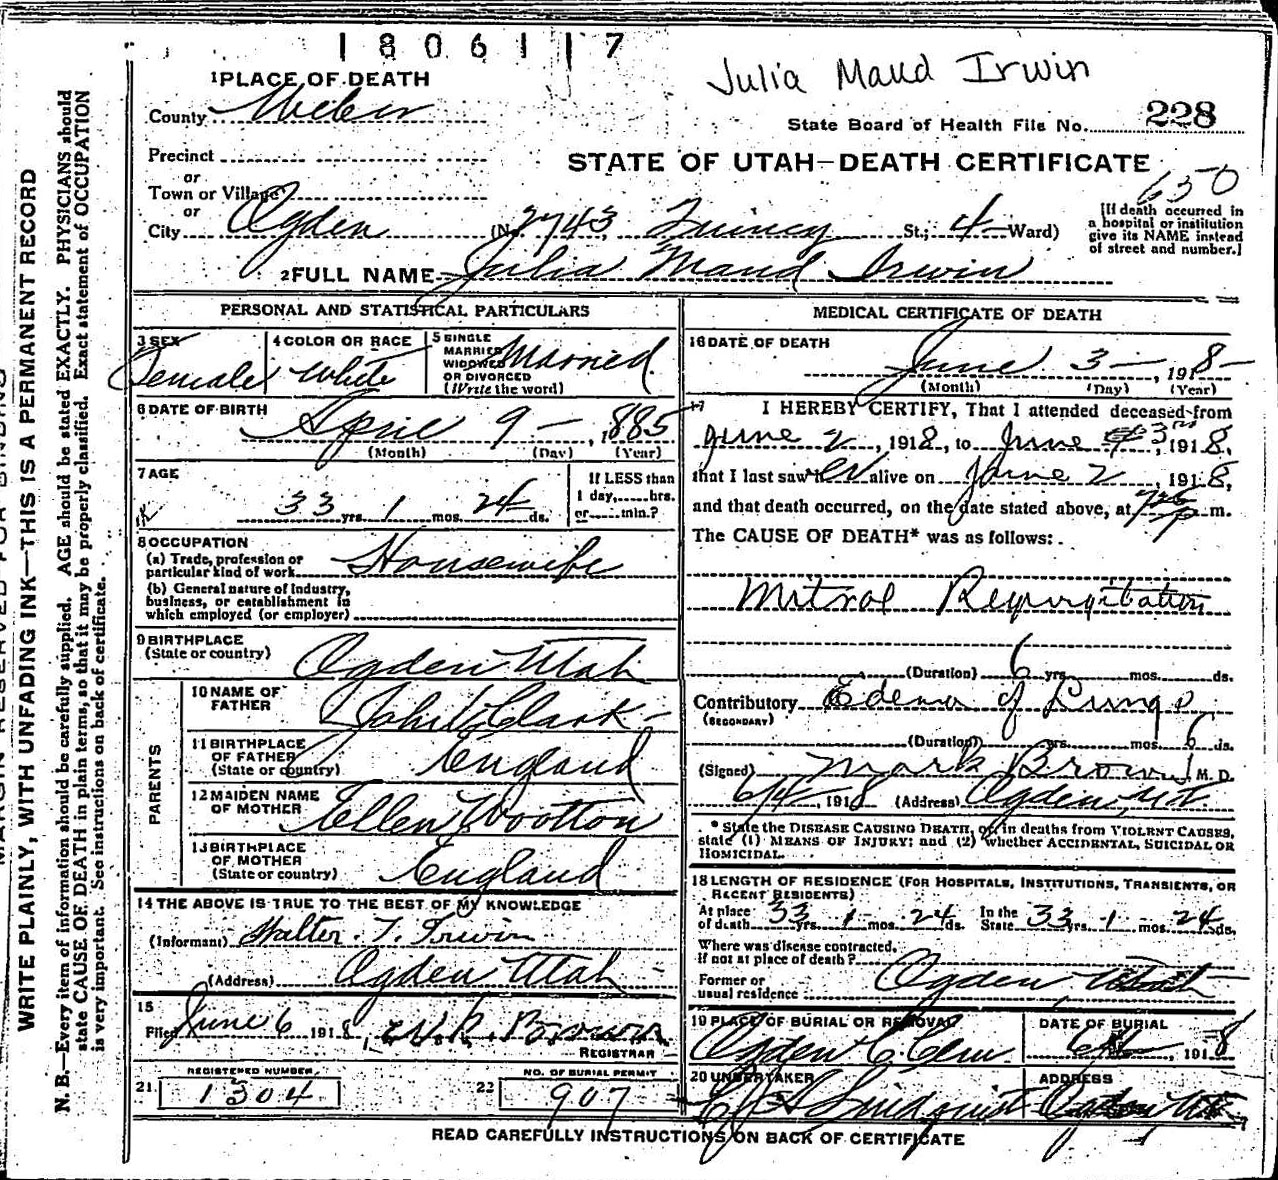 1806117
Julia Maud Irwin
State Board of Health File No. 228
STATE OF UTAH—DEATH CERTIFICATE
650
[If death occurred in
a hospital or institution
give its NAME instead
of street and number.]
1 PLACE OF DEATH
County Weber
Precinct
or
Town or Village
or
City Ogden (No. 2743 Quincy St.; 4 Ward)
2 FULL NAME Julia Maud Irwin
PERSONAL AND STATISTICAL PARTICULARS
3 SEX Female
4 COLOR OR RACE White
5 SINGLE
MARRIED
WIDOWED
OR DIVORCED
(Write the word)
Married
6 DATE OF BIRTH April 9 — , 1885
(Month) (Day) (Year)
7 AGE
33 yrs. 1 mos. 24 ds.
If LESS than
1 day,......hrs.
or......min.?
8 OCCUPATION
(a) Trade, profession or
particular kind of work Housewife
(b) General nature of industry,
business, or establishment in
which employed (or employer)
9 BIRTHPLACE
(State or country) Ogden Utah
PARENTS
10 NAME OF
FATHER John Clark
11 BIRTHPLACE
OF FATHER
(State or country) England
12 MAIDEN NAME
OF MOTHER Ellen Wootton
13 BIRTHPLACE
OF MOTHER
(State or country) England
14 THE ABOVE IS TRUE TO THE BEST OF MY KNOWLEDGE
(Informant) Walter T. Irwin
(Address) Ogden Utah
15
Filed June 6 1918, Brown
REGISTRAR
21 REGISTERED NUMBER
1304
22 NO. OF BURIAL PERMIT
907
MEDICAL CERTIFICATE OF DEATH
16 DATE OF DEATH
June 3 — , 1918
(Month) (Day) (Year)
17 I HEREBY CERTIFY, That I attended deceased from
June 2, 1918, to June 3rd, 1918,
that I last saw her alive on June 2, 1918,
and that death occurred, on the date stated above, at p m.
The CAUSE OF DEATH* was as follows:
Mitral Regurgitation
(Duration) 6 yrs. mos. ds.
Contributory Edema of Lungs
(SECONDARY)
(Duration) yrs. mos. 6 ds.
(Signed) Mark Brown M. D.
6/4, 1918 (Address) Ogden, Ut.
* State the DISEASE CAUSING DEATH, or, in deaths from VIOLENT CAUSES,
state (1) MEANS OF INJURY; and (2) whether ACCIDENTAL, SUICIDAL OR
HOMICIDAL.
18 LENGTH OF RESIDENCE (FOR HOSPITALS, INSTITUTIONS, TRANSIENTS, OR
RECENT RESIDENTS)
At place
of death 33 yrs. 1 mos. 24 ds. In the
State 33 yrs. 1 mos. 24 ds.
Where was disease contracted,
If not at place of death?
Former or
usual residence Ogden Utah
19 PLACE OF BURIAL OR REMOVAL
Ogden C. Cem
DATE OF BURIAL
1918
20 UNDERTAKER
Lindquist
ADDRESS
Ogden Ut
READ CAREFULLY INSTRUCTIONS ON BACK OF CERTIFICATE
MARGIN RESERVED FOR BINDING
WRITE PLAINLY, WITH UNFADING INK—THIS IS A PERMANENT RECORD
N. B.—Every item of information should be carefully supplied. AGE should be stated EXACTLY. PHYSICIANS should
state CAUSE OF DEATH in plain terms, so that it may be properly classified. Exact statement of OCCUPATION
is very important. See instructions on back of certificate.